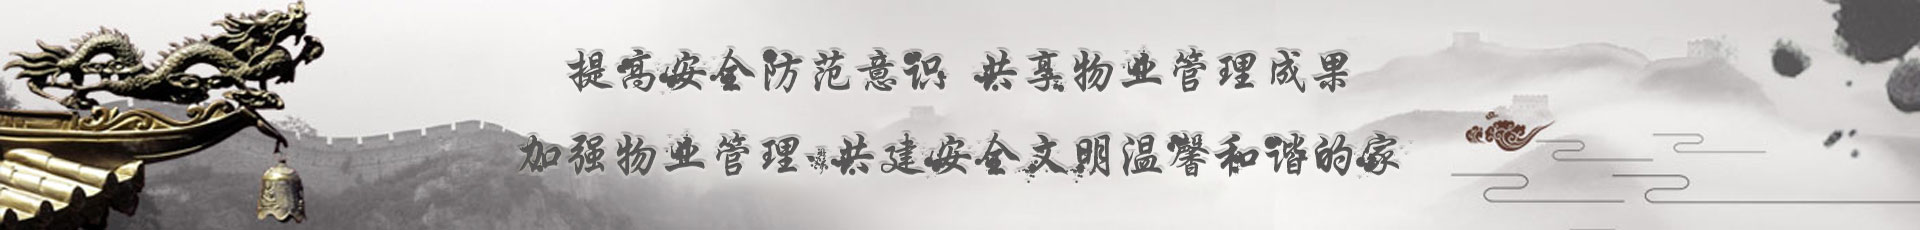 提高安全防范意识 共享物业管理成果
加强物业管理 共建安全文明温馨和谐的家